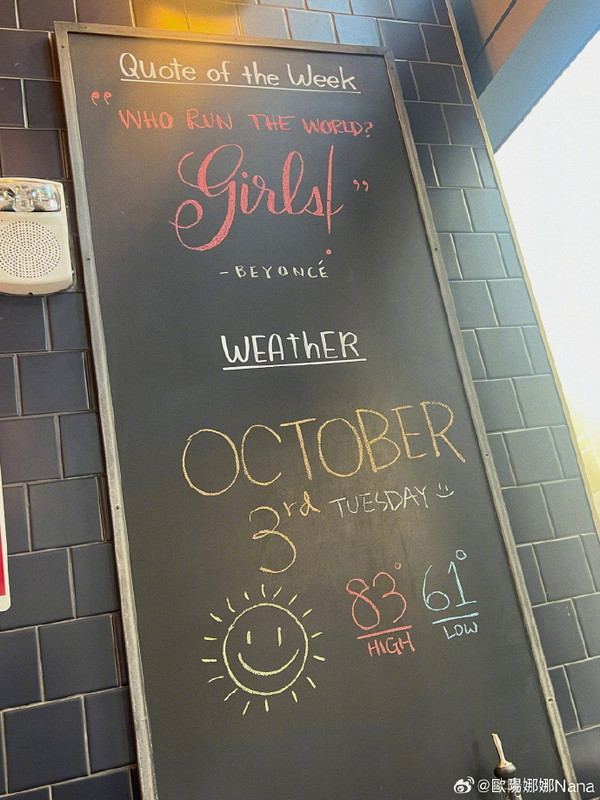 Quote of the Week
"WHO RUN THE WORLD?
Girls!"
-BEYONCÉ
WEAthER
OCTOBER
3rd TUESDAY
83° 61°
HIGH LOW
@歐陽娜娜Nana